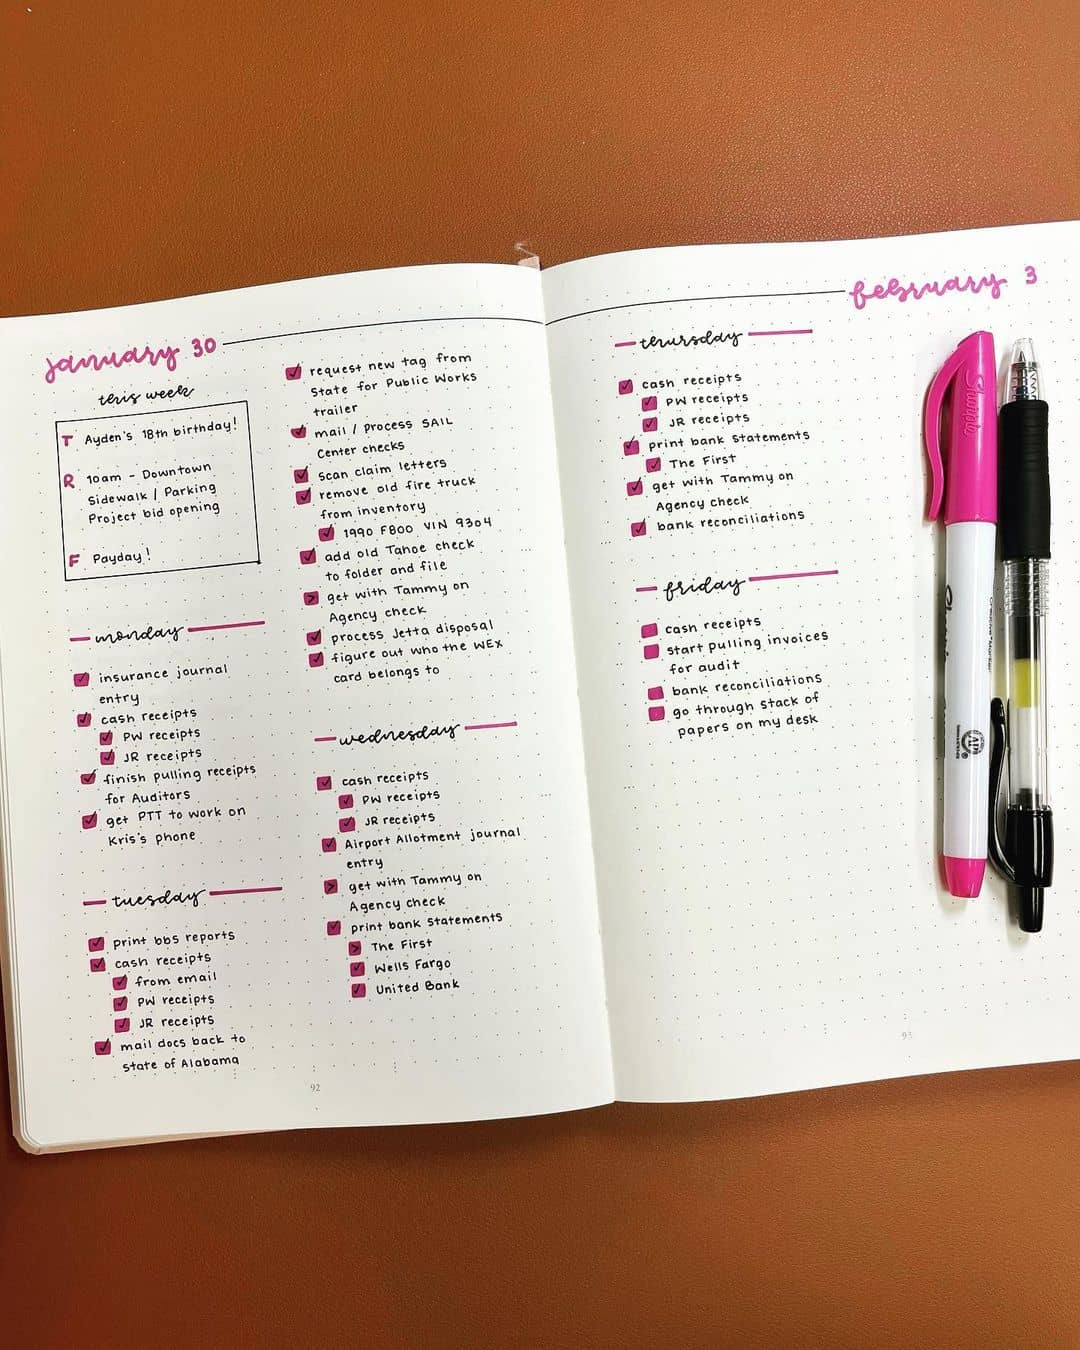 january 30
this week
T Ayden's 18th birthday!
R 10am - Downtown
Sidewalk / Parking
Project bid opening
F Payday!
monday
insurance journal
entry
cash receipts
PW receipts
JR receipts
finish pulling receipts
for Auditors
get PTT to work on
Kris's phone
tuesday
print bbs reports
cash receipts
from email
PW receipts
JR receipts
mail docs back to
State of Alabama
request new tag from
State for Public Works
trailer
mail / process SAIL
Center checks
scan claim letters
remove old fire truck
from inventory
1990 F800 VIN 9304
add old Tahoe check
to folder and file
> get with Tammy on
Agency check
process Jetta disposal
figure out who the WEX
card belongs to
wednesday
cash receipts
PW receipts
JR receipts
Airport Allotment journal
entry
> get with Tammy on
Agency check
print bank statements
> The First
Wells Fargo
United Bank
92
february 3
thursday
cash receipts
PW receipts
JR receipts
print bank statements
The First
get with Tammy on
Agency check
bank reconciliations
friday
cash receipts
start pulling invoices
for audit
bank reconciliations
go through stack of
papers on my desk
93
Sharpie